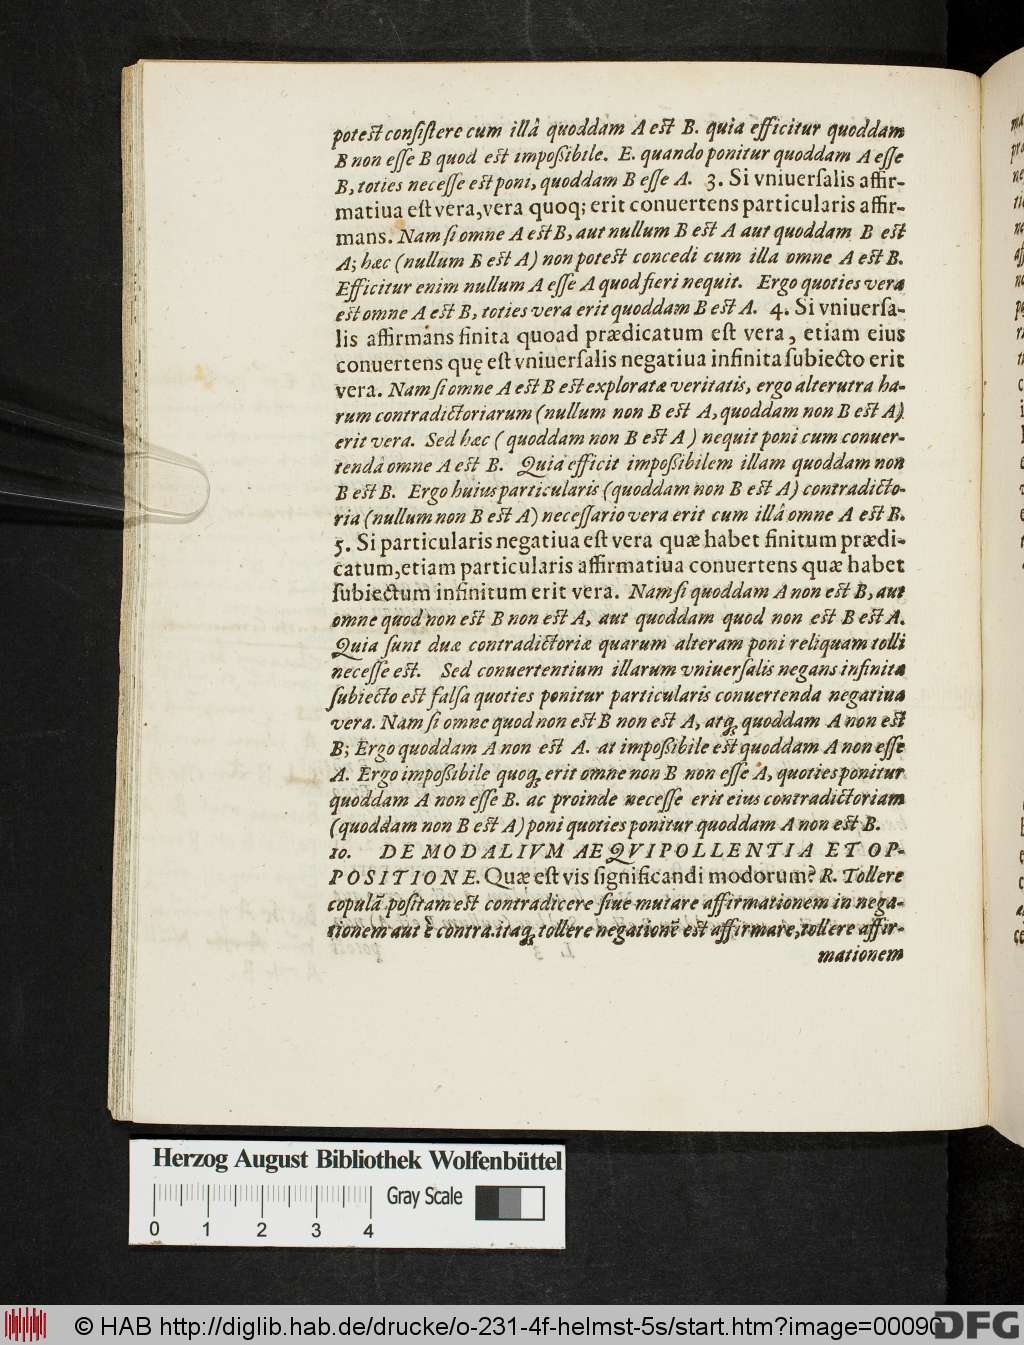 potest consistere cum illâ quoddam A est B. quia efficitur quoddam
B non esse B quod est impoßibile. E. quando ponitur quoddam A esse
B, toties necesse est poni, quoddam B esse A. 3. Si vniuersalis affir-
matiua est vera, vera quoq; erit conuertens particularis affir-
mans. Nam si omne A est B, aut nullum B est A aut quoddam B est
A; hæc (nullum B est A) non potest concedi cum illa omne A est B.
Efficitur enim nullum A esse A quod fieri nequit. Ergo quoties vera
est omne A est B, toties vera erit quoddam B est A. 4. Si vniuersa-
lis affirmans finita quoad prædicatum est vera, etiam eius
conuertens quę est vniuersalis negatiua infinita subiecto erit
vera. Nam si omne A est B est exploratæ veritatis, ergo alterutra ha-
rum contradictoriarum (nullum non B est A, quoddam non B est A)
erit vera. Sed hæc ( quoddam non B est A ) nequit poni cum conuer-
tendâ omne A est B. Quia efficit impoßibilem illam quoddam non
B est B. Ergo huius particularis (quoddam non B est A) contradicto-
ria (nullum non B est A) necessario vera erit cum illâ omne A est B.
5. Si particularis negatiua est vera quæ habet finitum prædi-
catum, etiam particularis affirmatiua conuertens quæ habet
subiectum infinitum erit vera. Nam si quoddam A non est B, aut
omne quod non est B non est A, aut quoddam quod non est B est A.
Quia sunt duæ contradictoriæ quarum alteram poni reliquam tolli
necesse est. Sed conuertentium illarum vniuersalis negans infinita
subiecto est falsa quoties ponitur particularis conuertenda negatiua
vera. Nam si omne quod non est B non est A, atq; quoddam A non est
B; Ergo quoddam A non est A. at impoßibile est quoddam A non esse
A. Ergo impoßibile quoq; erit omne non B non esse A, quoties ponitur
quoddam A non esse B. ac proinde necesse erit eius contradictoriam
(quoddam non B est A) poni quoties ponitur quoddam A non est B.
10. DE MODALIVM AEQVIPOLLENTIA ET OP-
POSITIONE. Quæ est vis significandi modorum? R. Tollere
copulā positam est contradicere siue mutare affirmationem in nega-
tionem aut è contra. itaq; tollere negationē est affirmare, tollere affir-
mationem
Herzog August Bibliothek Wolfenbüttel
Gray Scale
0 1 2 3 4
© HAB http://diglib.hab.de/drucke/o-231-4f-helmst-5s/start.htm?image=00090
DFG